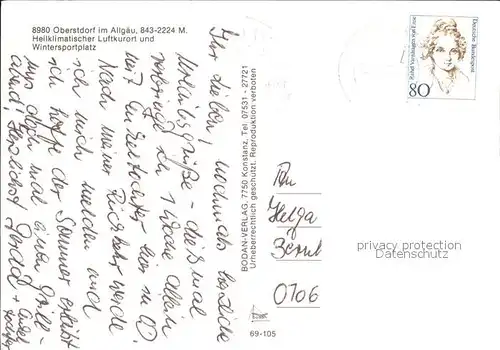 8980 Oberstdorf im Allgäu, 843-2224 M.
Heilklimatischer Luftkurort und
Wintersportplatz
Ihr Lieben! nochmals herzliche
Urlaubsgrüße - diesmal
verbringe ich 1 Woche allein
mit Enkeltochter hier in O
Nach meiner Rückkehr werde
ich mich melden und
ich hoffe der Sommer erlaubt
uns doch mal einen Grill-
abend! Herzlichst
BODAN-VERLAG, 7750 Konstanz, Tel. 07531 - 27721
Urheberrechtlich geschützt. Reproduktion verboten
69-105
Deutsche Bundespost
Rahel Varnhagen von Ense
80
An
Helga
0706
privacy protection
Datenschutz